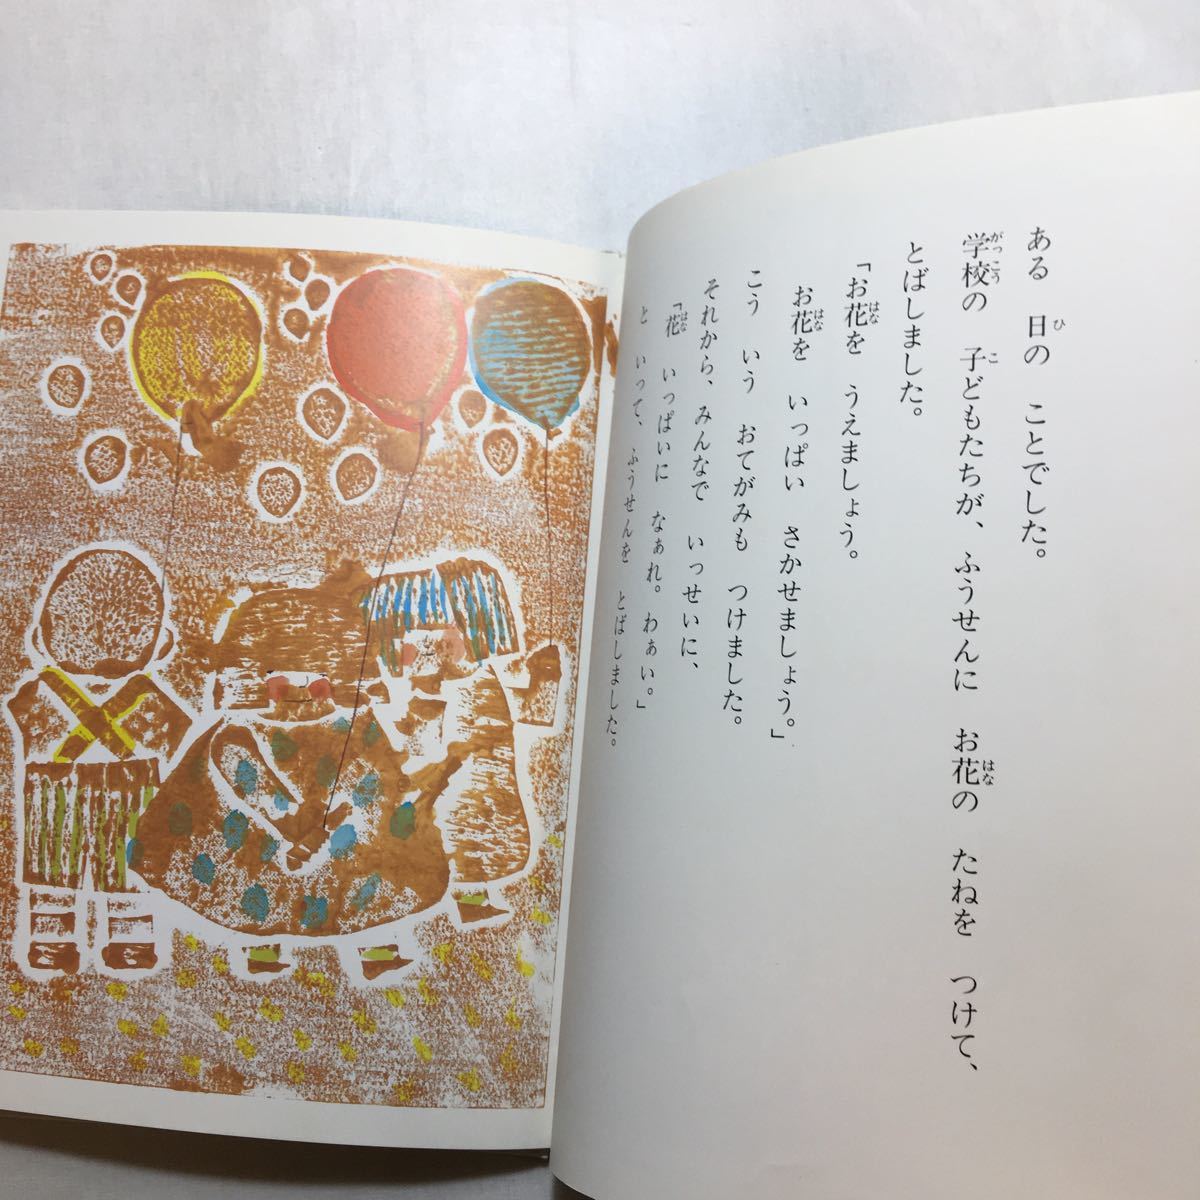 ある 日の ことでした。
学校の 子どもたちが、ふうせんに お花の たねを つけて、
とばしました。
「お花を うえましょう。
お花を いっぱい さかせましょう。」
こう いう おてがみも つけました。
それから、みんなで いっせいに、
「花 いっぱいに なぁれ。わぁい。」
と いって、ふうせんを とばしました。